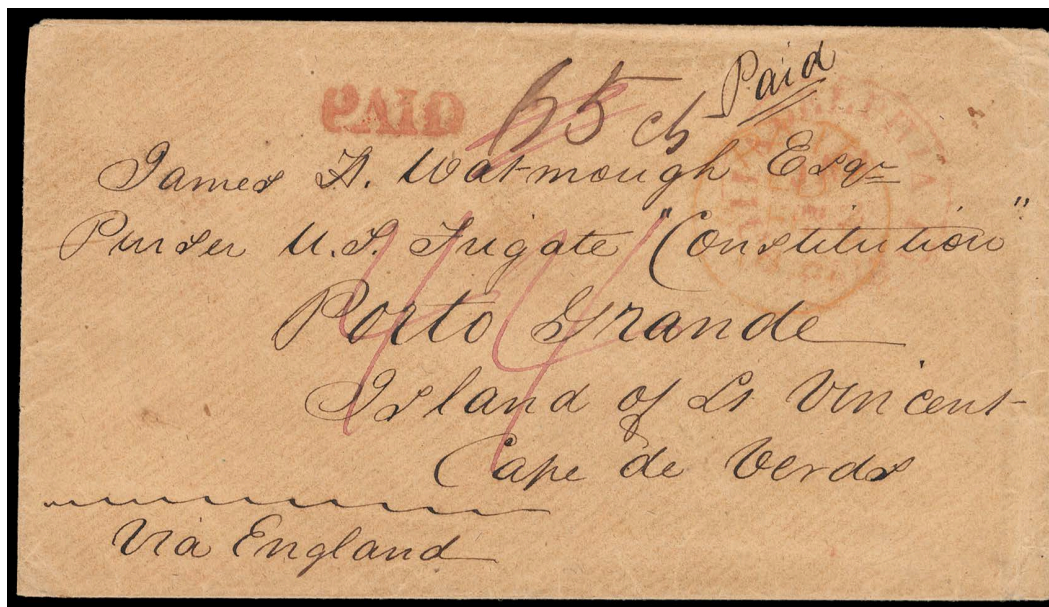 PAID 65 cts Paid
James H. Watmough Esqr
Purser U.S. Frigate "Constitution"
Porto Grande
Island of St Vincent
Cape de Verds
Via England
44